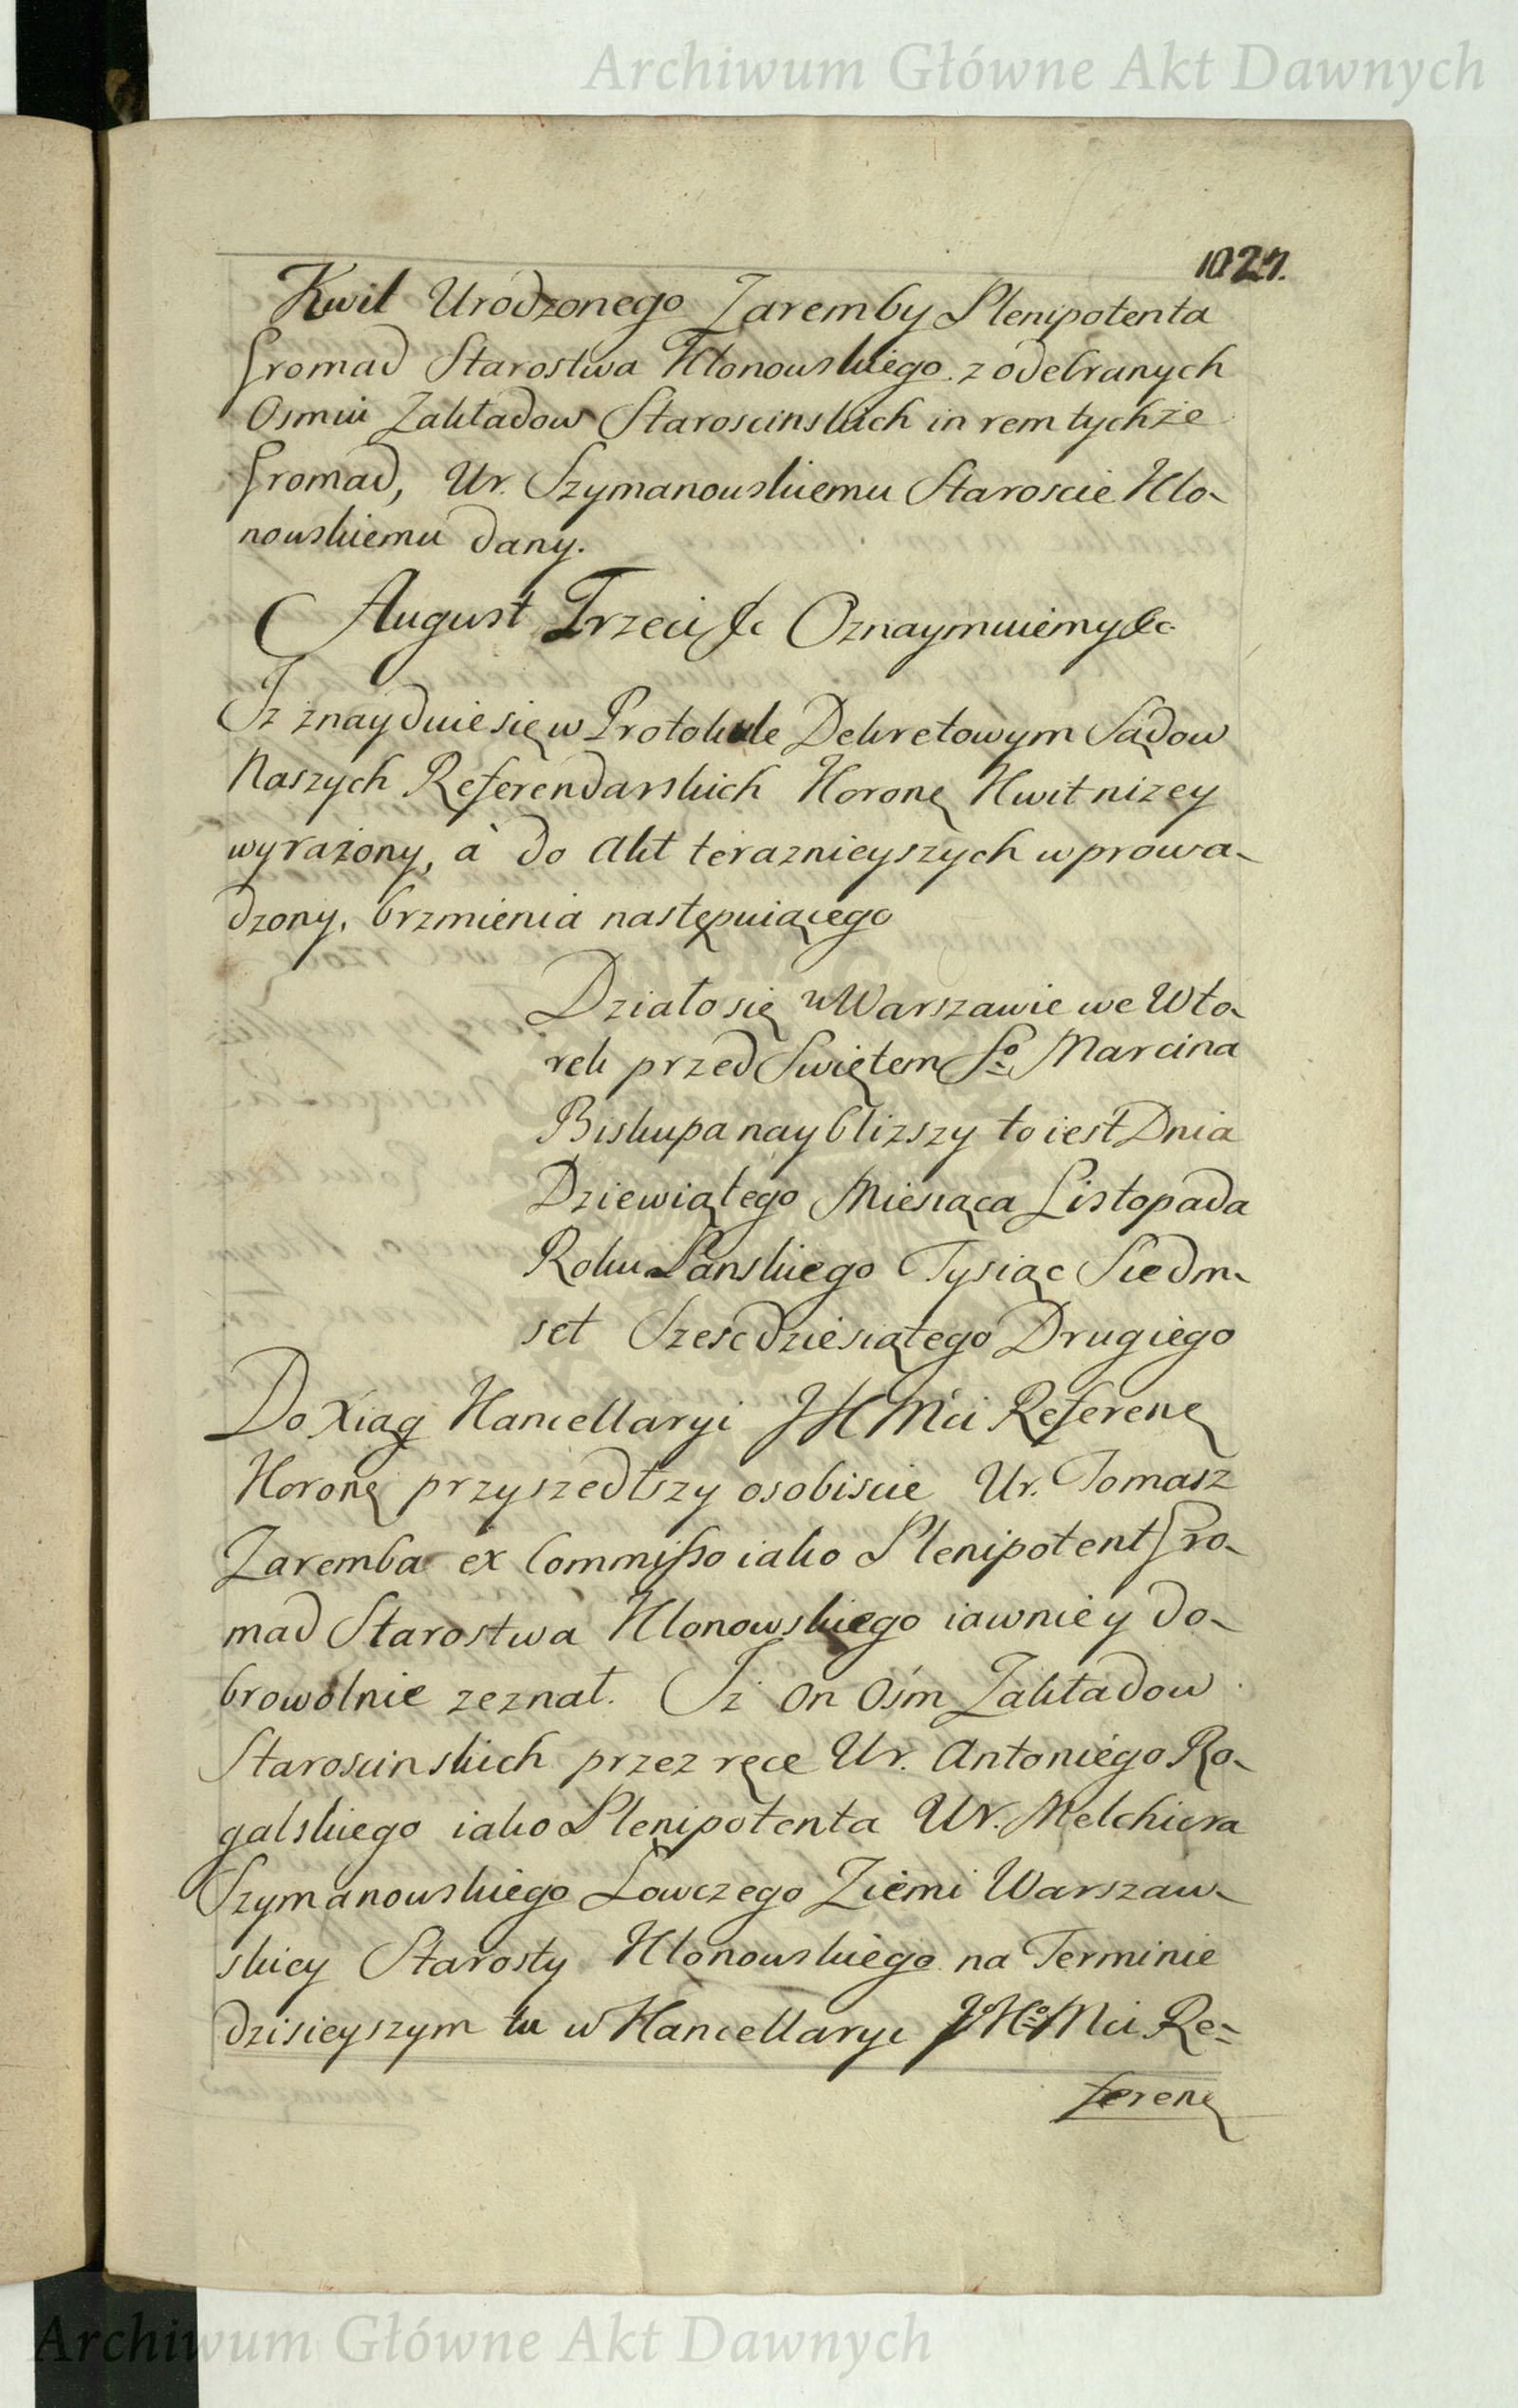 Archiwum Główne Akt Dawnych
1027.
Kwit Urodzonego Zaremby Plenipotenta
Gromad Starostwa Klonowskiego z odebranych
Osmiu Zakładow Staroscinskich in rem tychże
Gromad, Ur. Szymanowskiemu Staroscie Klo-
nowskiemu dany.
August Trzeci &c Oznaymuiemy &c
Iz znayduie się w Protokule Dekretowym Sądow
Naszych Referendarskich Koronę Kwit nizey
wyrażony, à do Akt teraznieyszych wprowa-
dzony, brzmienia następuiącego
Działo się w Warszawie we Wto-
rek przed Swiętem So Marcina
Biskupa nayblizszy to iest Dnia
Dziewiątego Miesiąca Listopada
Roku Panskiego Tysiąc Siedm-
set Szescdziesiątego Drugiego
Do Xiąg Kancellaryi JKMci Referenę
Koronę przyszedłszy osobiscie Ur. Tomasz
Zaremba ex Commisso iako Plenipotent Gro-
mad Starostwa Klonowskiego iawnie y do-
browolnie zeznał. Iż on Ośm Zakładow
Staroscinskich przez ręce Ur. Antoniego Ro-
galskiego iako Plenipotenta Ur. Melchiora
Szymanowskiego Łowczego Ziemi Warszaw-
skiey Starosty Klonowskiego na Terminie
dzisieyszym tu w Kancellaryi JoKoMci Re-
ferenę
Archiwum Główne Akt Dawnych